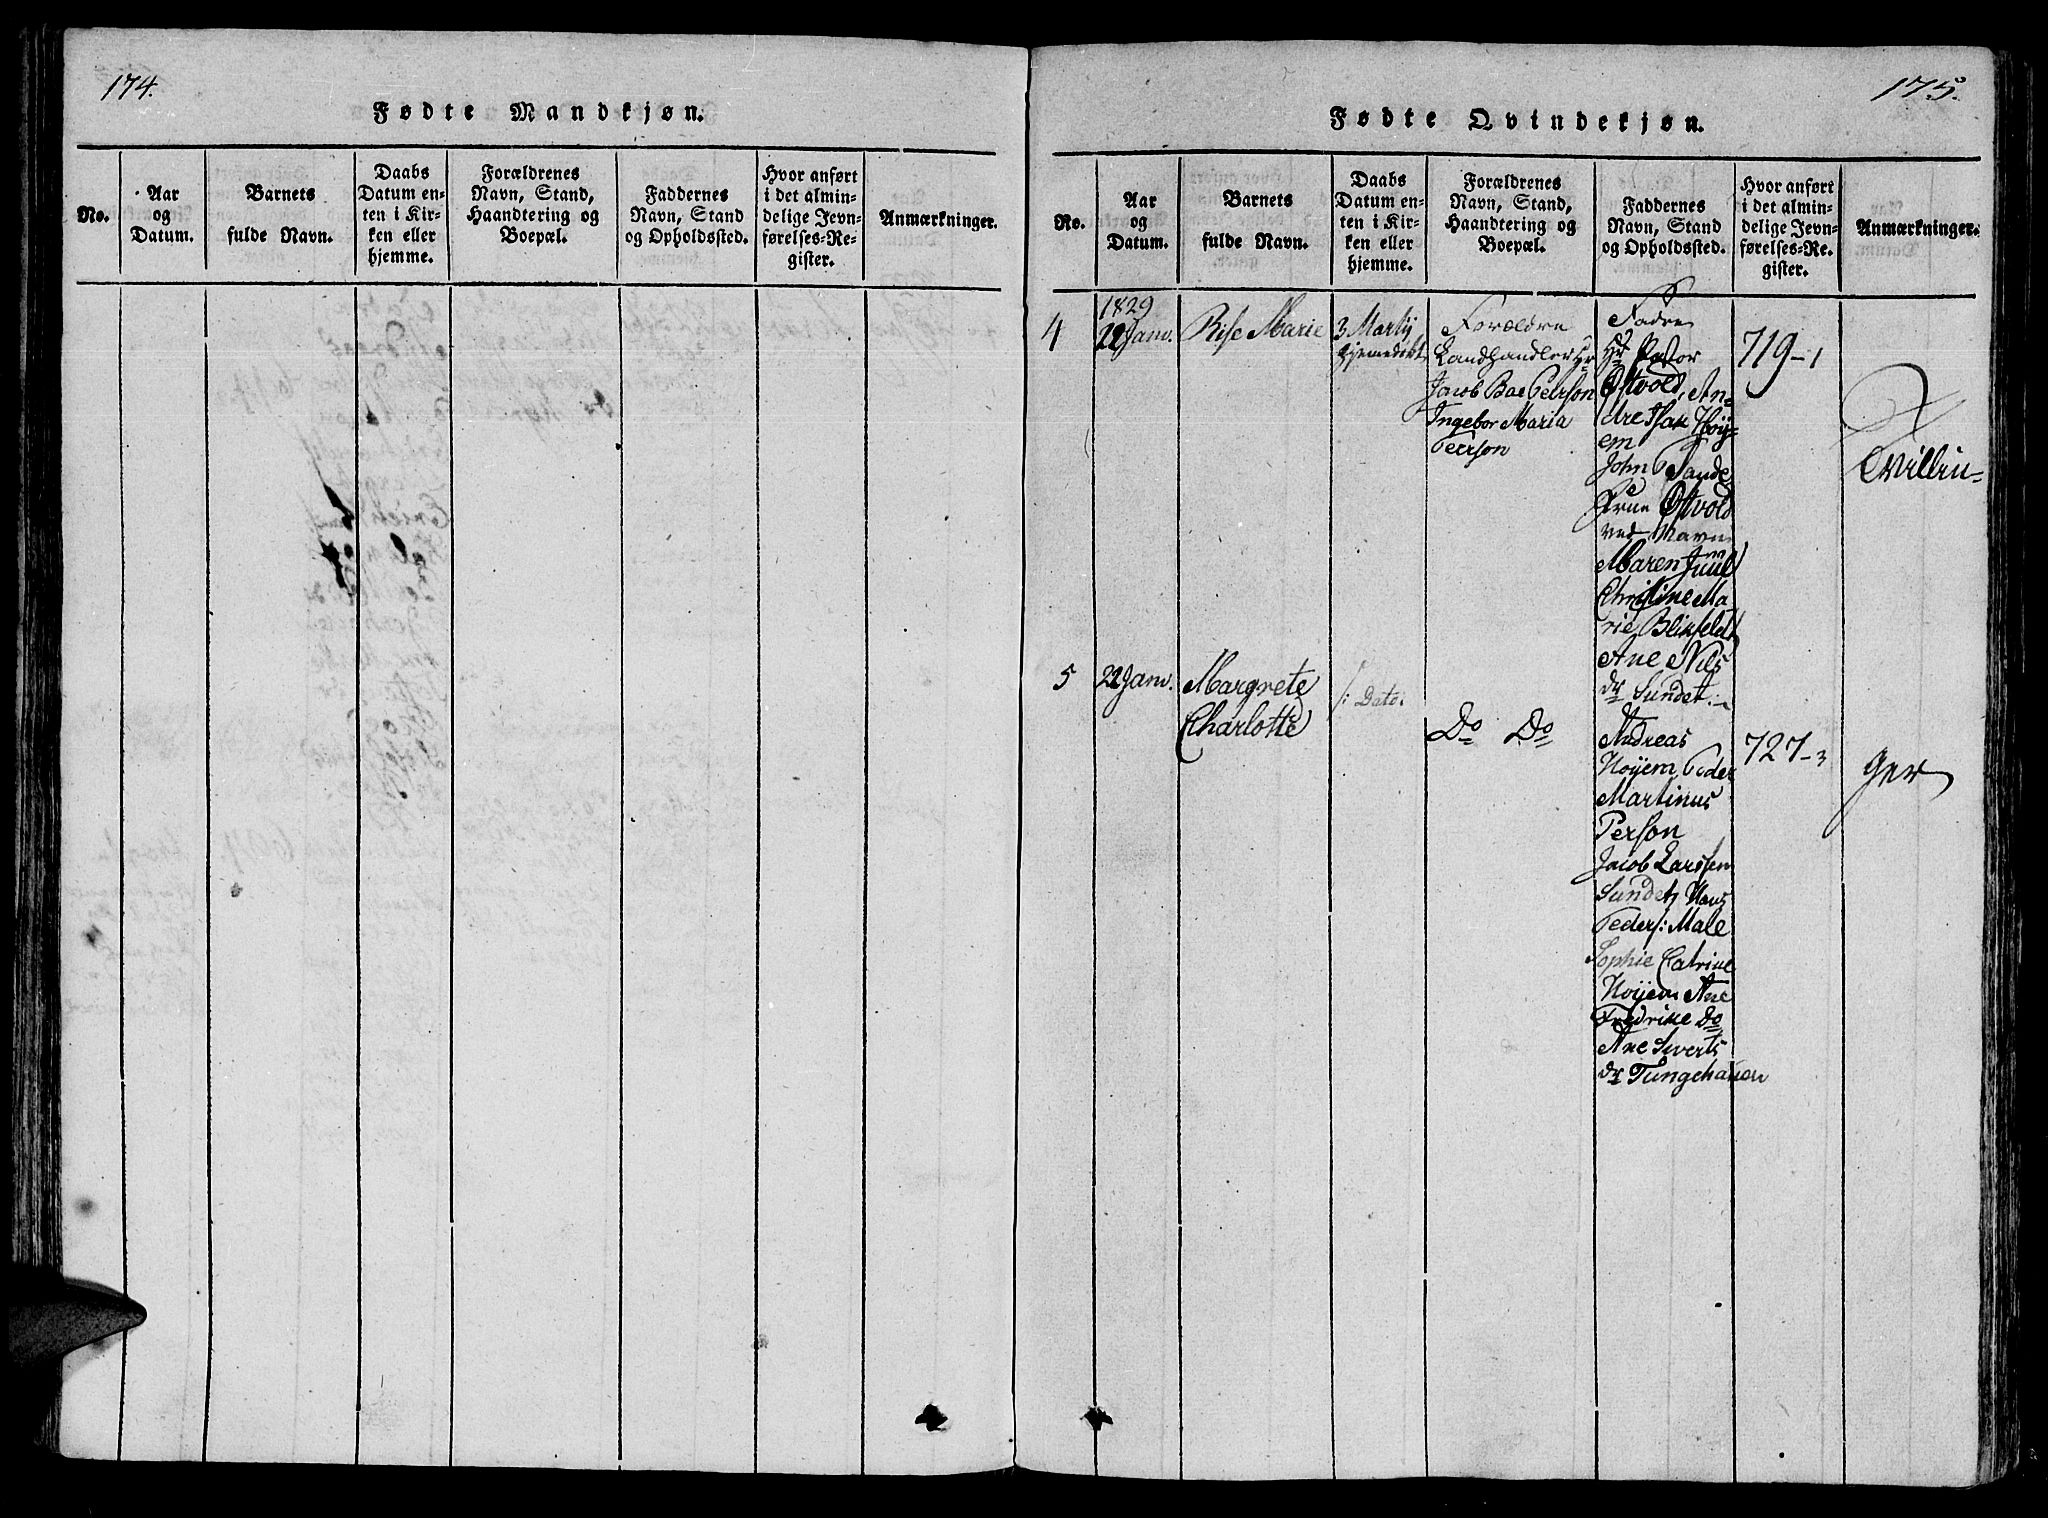 174.
Fødte Mandkjøn.
No.
Aar
og
Datum.
Barnets
fulde Navn.
Daabs
Datum en-
ten i Kir-
ken eller
hjemme.
Forældrenes
Navn, Stand,
Haandtering og
Boepæl.
Faddernes
Navn, Stand
og Opholdssted.
Hvor anført
i det almin-
delige Jevn-
førelses-Re-
gister.
Anmærkninger.
175.
Fødte Qvindekjøn.
No.
Aar
og
Datum.
Barnets
fulde Navn.
Daabs
Datum en-
ten i Kir-
ken eller
hjemme.
Forældrenes
Navn, Stand,
Haandtering og
Boepæl.
Faddernes
Navn, Stand
og Opholdssted.
Hvor anført
i det almin-
delige Jevn-
førelses-Re-
gister.
Anmærkninger.
4
1829
22 Janv.
Rise Marie
3 Martij
hjemedøbt
Forældre
Landhandler Hr
Jacob Bae Peerson
Ingebor Maria
Peerson
Fadre
Hr Pastor
Østvold, An-
dre Isak Høy-
em
John P Sande
Frue Østvold
ved Navn
Maren Juul
Christine Ma
rie Blixfeldt
Ane Nils
dr Sundet.
719-1
Tvillin-
5
22 Janv.
Margrete
Charlotte
/: Dato.
Do Do
Andreas
Høyem Peder
Martinus
Person
Jacob Larssen
Sundet, Hans
Peders: Male
Sophie Catrine
Høyem Ane
Fredrike Do
Ane Siverts
dr Tungehauen
727-3
ger